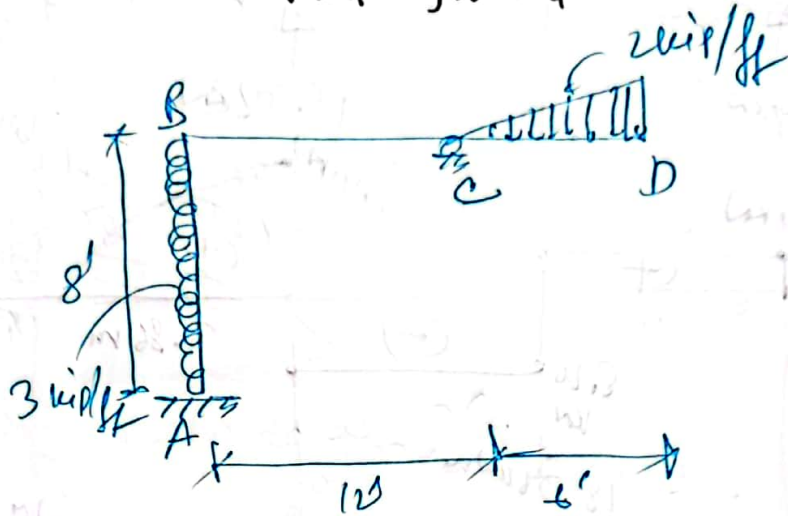 2 kip/ft
B
C
D
8'
3 kip/ft
A
12'
6'